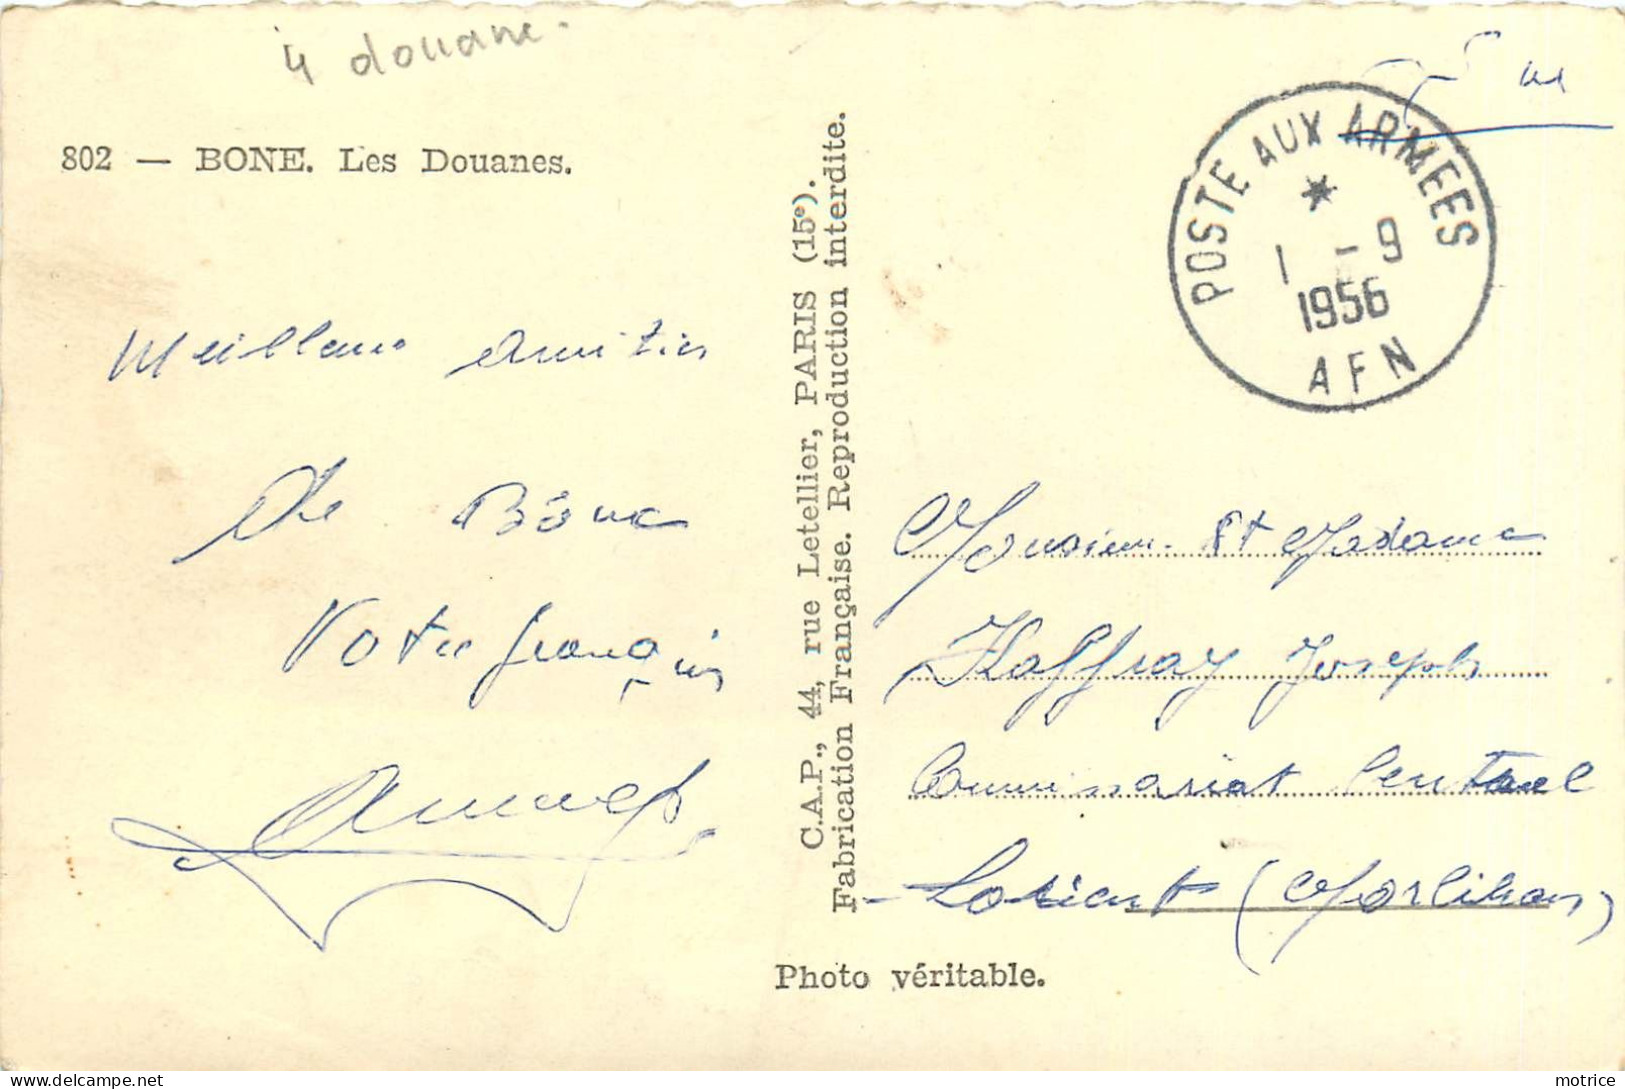 4 douane.
802 — BONE. Les Douanes.
Meilleure amitiés
De Bône
Votre français
C.A.P., 44, rue Letellier, PARIS (15e).
Fabrication Française. Reproduction interdite.
Photo véritable.
POSTE AUX ARMEES
1 - 9
1956
AFN
Monsieur et Madame
Kaffray Joseph
Commissariat Central
Lorient (Morbihan)
motrice